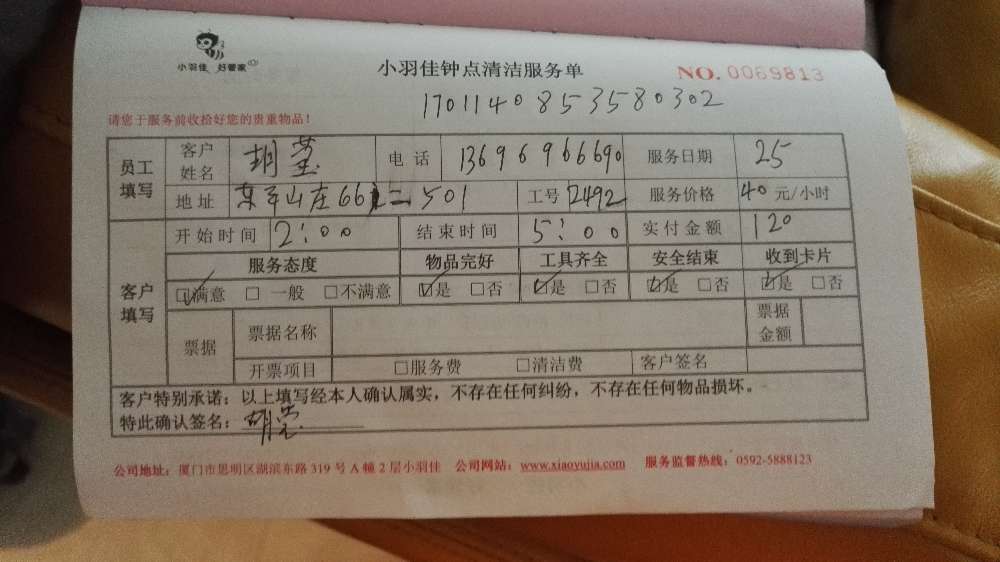 小羽佳 好管家
小羽佳钟点清洁服务单 NO. 0069813
1701140853580302
请您于服务前收拾好您的贵重物品!
员工填写 客户姓名 胡莹 电话 13696966690 服务日期 25
地址 东平山庄66 二 501 工号 2492 服务价格 40 元/小时
客户填写 开始时间 2:00 结束时间 5:00 实付金额 120
服务态度 物品完好 工具齐全 安全结束 收到卡片
☑满意 □ 一般 □不满意 ☑是 □否 ☑是 □否 ☑是 □否 ☑是 □否
票据 票据名称 票据金额
开票项目 □服务费 □清洁费 客户签名
客户特别承诺:以上填写经本人确认属实,不存在任何纠纷,不存在任何物品损坏。
特此确认签名:胡莹
公司地址:厦门市思明区湖滨东路 319 号 A 幢 2 层小羽佳 公司网站:www.xiaoyujia.com 服务监督热线:0592-5888123